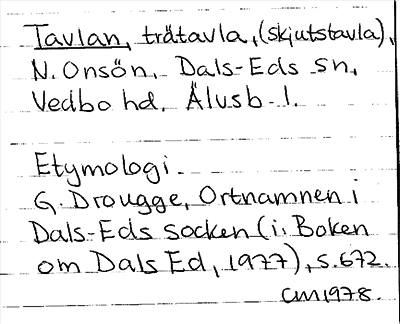 Tavlan, trätavla, (skjutstavla),
N. Onsön, Dals-Eds sn,
Vedbo hd. Älvsb. l.
Etymologi.
G. Drougge, Ortnamnen i
Dals-Eds socken (i: Boken
om Dals Ed, 1977), s. 672.
CM 1978.